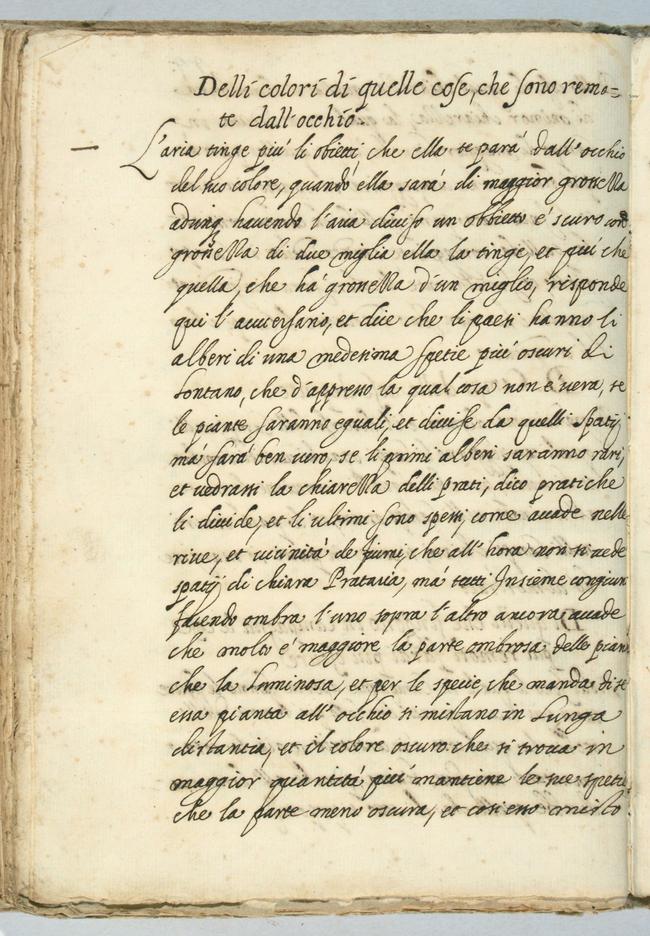 Delli colori di quelle cose, che sono remo=
te dall'occhio.
L'aria tinge piú li obietti, che ella separá dall'occhio
del suo colore, quandó ella sará di maggior grossezza
adunq havendo l'aria diviso un obbietto é scuro con
grossezza di due miglia ella la tinge, et piú che
quella, che há grossezza d'un miglio, risponde
qui l'avversario, et dice che li paesi hanno li
alberi di una medesima spetie piú oscuri di
Lontano, che d'appresso la qual cosa non é vera, se
le piante saranno eguali, et divise da quelli spatij
má sará ben vero, se li primi alberi saranno rari,
et vedrassi la chiarezza delli prati, dico prati che
li divide, et li ultimi sono spessi, come acade nelle
rive, et vicinitá de fiumi, che all'hora non si vede
spatij di chiara Prataria, má tutti Insieme congiun
facendo ombra l'uno sopra l'altro ancora acade
che molto é maggiore la parte ombrosa delle pian
che la Luminosa, et per le specie, che manda di se
essa pianta all'occhio si mistano in Lunga
distantia, et il colore oscuro che si trova in
maggior quantitá piú mantiene le sue spetie
che la parte meno oscura, et cosi esso misto